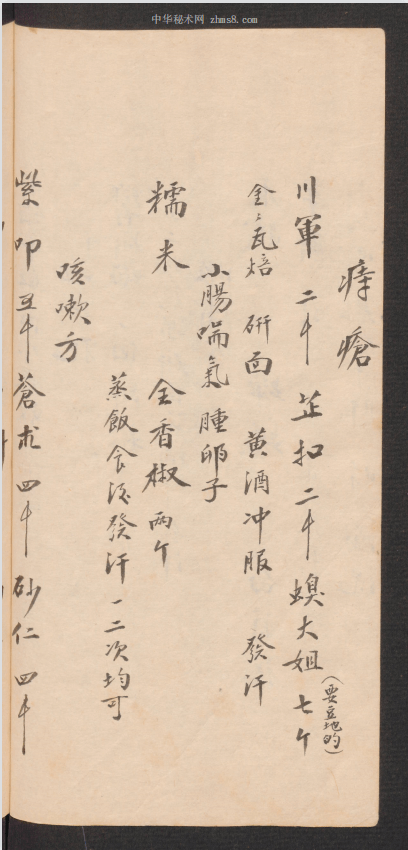 中华秘术网 zhms8.com
痔瘡
川軍 二十 芷扣 二十 蟓大姐 七个
（要豆地的）
全ミ瓦焙 研面 黄酒冲服 發汗
小腸喘氣 腫卵子
糯米 全香椒 兩个
蒸飯食后發汗 一二次均可
咳嗽方
紫叩 五十 蒼朮 四十 砂仁 四十